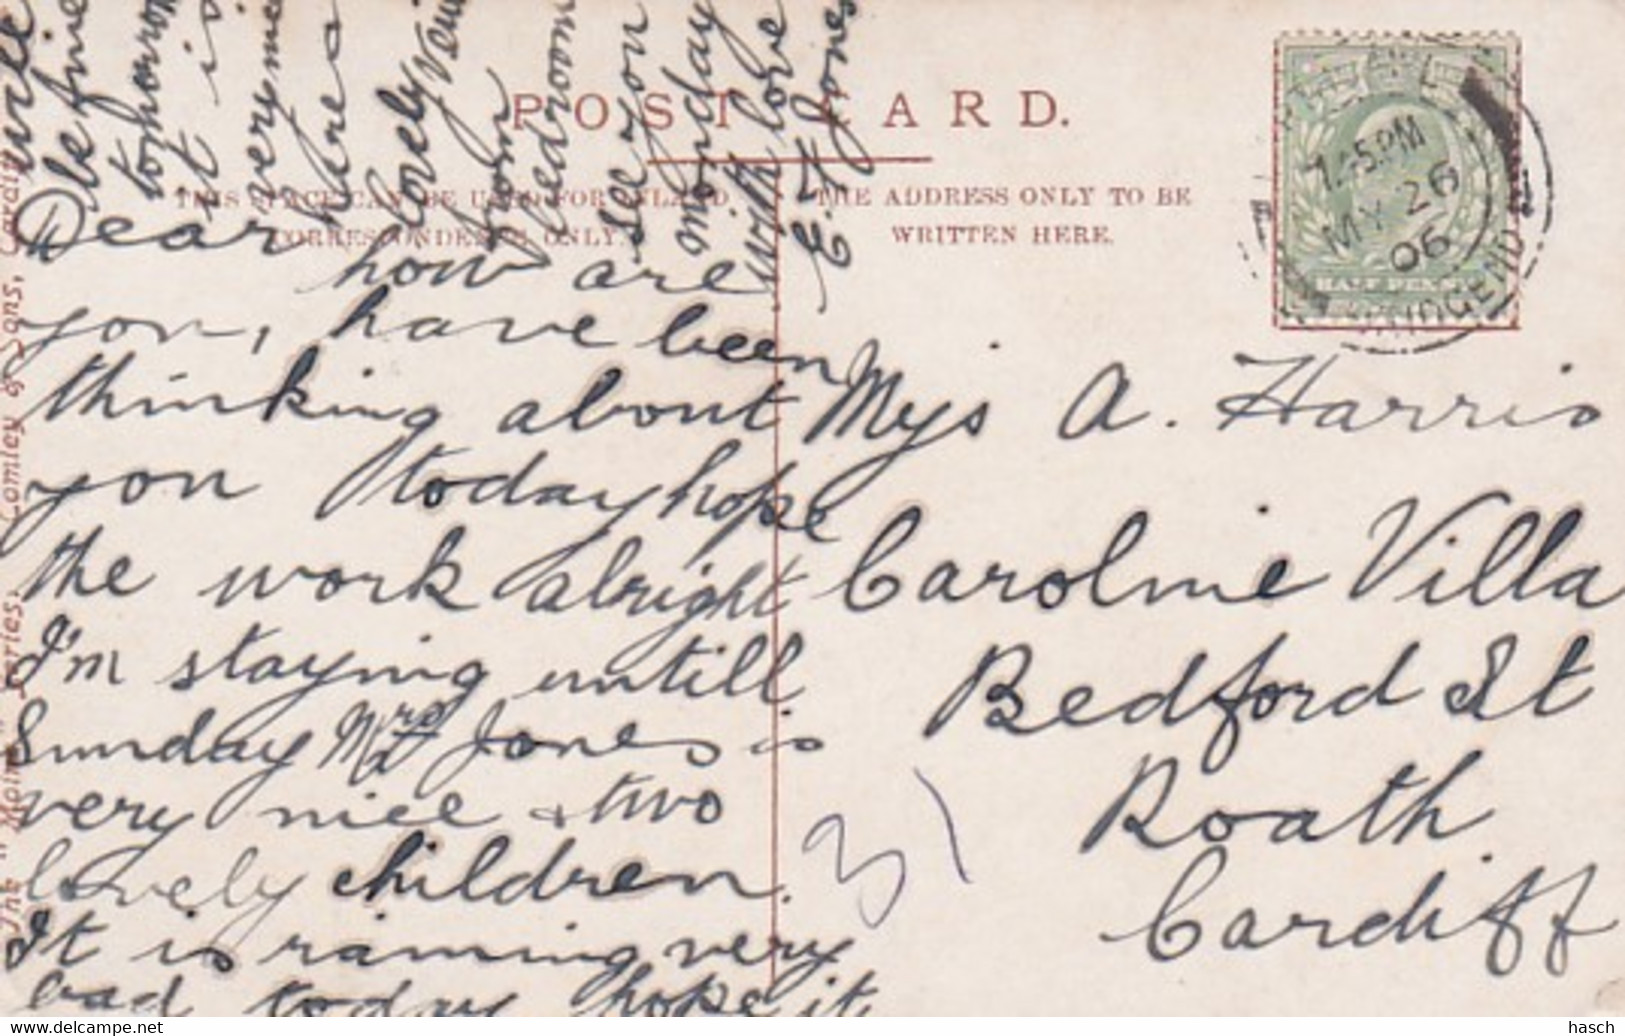 POST CARD.
THIS SPACE CAN BE USED FOR INLAND
CORRESPONDENCE ONLY.
THE ADDRESS ONLY TO BE
WRITTEN HERE.
Dear
how are
you, have been
thinking about
you today hope
the work alright
I'm staying untill
Sunday Mrs Jones is
very nice & two
lovely children.
It is raining very
bad today hope it
will
be fine
tomorrow
it is
very nice
here a
lovely veiw
from
bedroom
see you
monday
with love
E. Jones
A. Harris
Caroline Villa
Bedford St
Roath
Cardiff
31
PM
MY 26
06
HALF PENNY
Series, Comley & Sons, Cardiff
delcampe.net
hasch